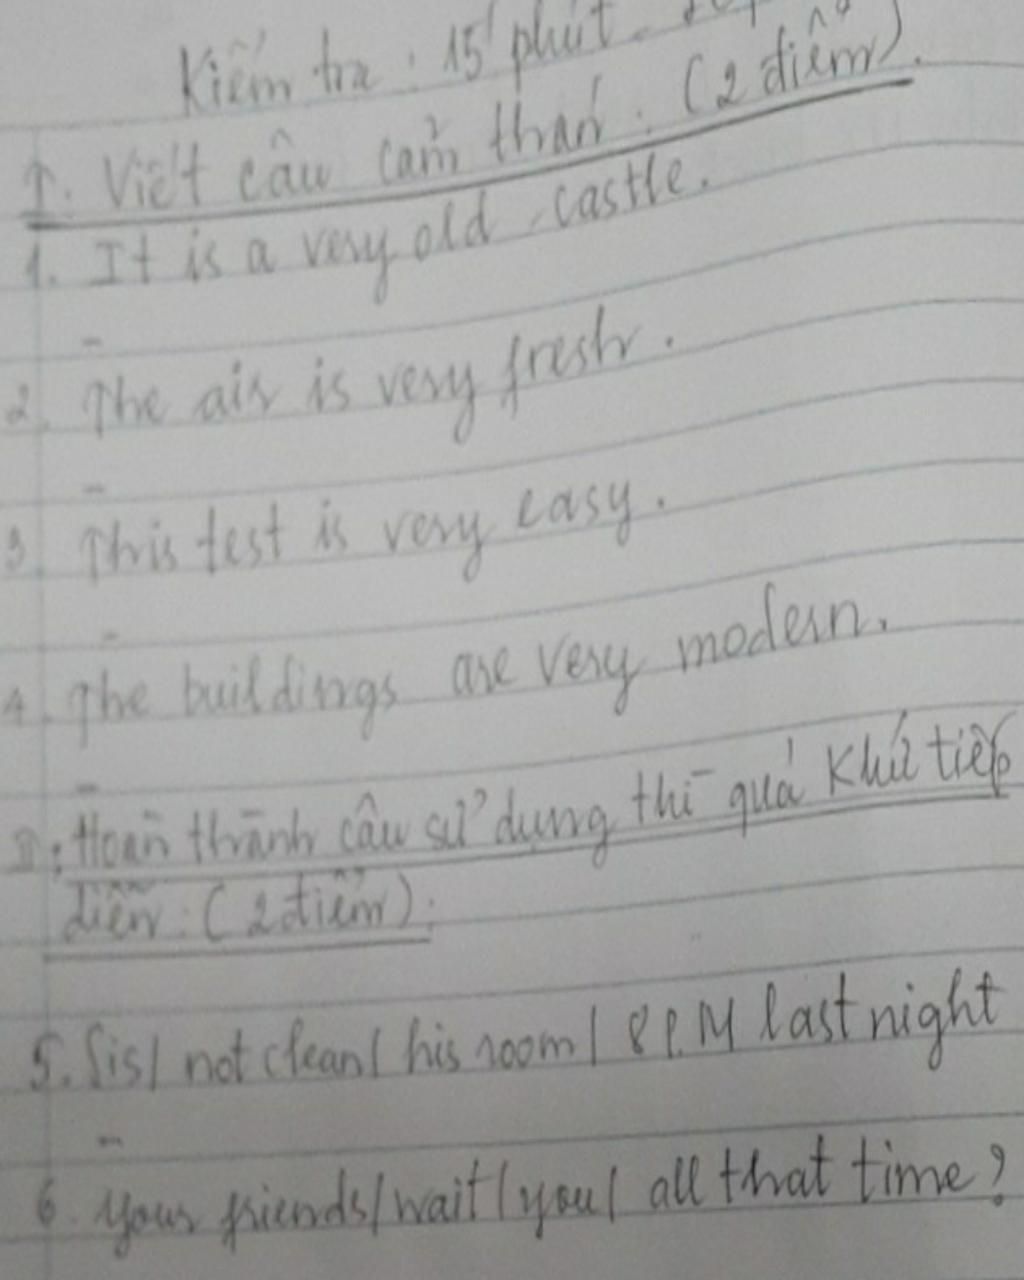 Kiểm tra : 15 phút
I. Viết câu cảm thán : (2 điểm).
1. It is a very old castle.
-
2. The air is very fresh.
-
3. This test is very easy.
-
4. The buildings are very modern.
-
II: Hoàn thành câu sử dụng thì quá khứ tiếp
diễn : (2 điểm) :
5. Sis/ not clean/ his room/ 8 P.M last night
-
6. your friends/wait/you/ all that time?